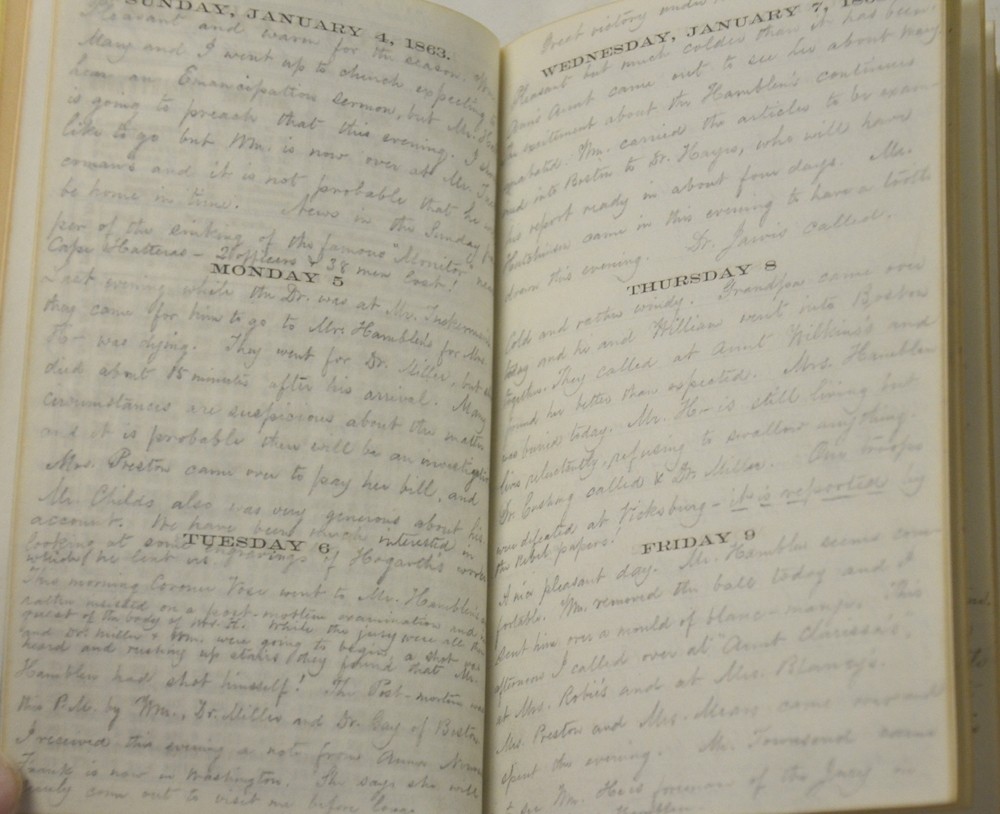 SUNDAY, JANUARY 4, 1863.
Pleasant and warm for the season.
Mary and I went up to church expecting to
hear an Emancipation Sermon, but Mr.
is going to preach that this evening. I should
like to go but Wm. is now over at Mr.
and it is not probable that he will
be home in time. News in the Sunday
per of the sinking of the famous "Monitor" near
Cape Hatteras - 2 officers & 38 men lost!
MONDAY 5
Last evening while the Dr. was at Mr. Tuckerman's
they came for him to go to Mrs. Hamblen's for Mrs.
H- was dying. They went for Dr. Miller, but she
died about 15 minutes after his arrival. Many
circumstances are suspicious about the matter
and it is probable there will be an investigation
Mrs. Preston came over to pay her bill, and
Mr. Childs also was very generous about his
account. We have been much interested in
looking at some engravings of Hogarth's works
which he lent us.
TUESDAY 6
This morning Coroner Vose went to Mr. Hamblen's
rather insisted on a post-mortem examination and
quest of the body of Mrs. H. While the jury were all there
and Dr. Miller & Wm. were going to begin, a shot was
heard and rushing up stairs they found that Mr.
Hamblen had shot himself! The Post-mortem was
this P.M. by Wm., Dr. Miller and Dr. Gay of Boston.
I received this evening a note from Anna
Frank is now in Washington. She says she will
surely come out to visit me before long.
Great victory under
WEDNESDAY, JANUARY 7,
Pleasant but much colder than it has been.
Aunt came out to see us about Mary.
The excitement about the Hamblen's continues
unabated. Wm. carried the articles to be exam-
ined into Boston to Dr. Hayes, who will have
his report ready in about four days. Mr.
Hutchinson came in this evening to have a tooth
down this evening. Dr. Jarvis called.
THURSDAY 8
Cold and rather windy. Grandpa came over
today and he and William went into Boston
together. They called at Aunt Wilkins's and
found her better than expected. Mrs. Hamblen
was buried today. Mr. H- is still living but
lies reluctantly, refusing to swallow anything
Dr. Cushing called & Dr. Miller. Our troops
were defeated at Vicksburg - it is reported by
the rebel papers!
FRIDAY 9
A nice pleasant day. Mr. Hamblen seems com-
fortable. Wm. removed the ball today and I
sent him over a mould of blanc-mange. This
afternoon I called over at Aunt Clarissa's,
at Mrs. Robie's and at Mrs. Blaney's.
Mrs. Preston and Mrs. Mears came over and
spent the evening. Mr. Townsend came
to see Wm. He is foreman of the Jury on
Hamblen.